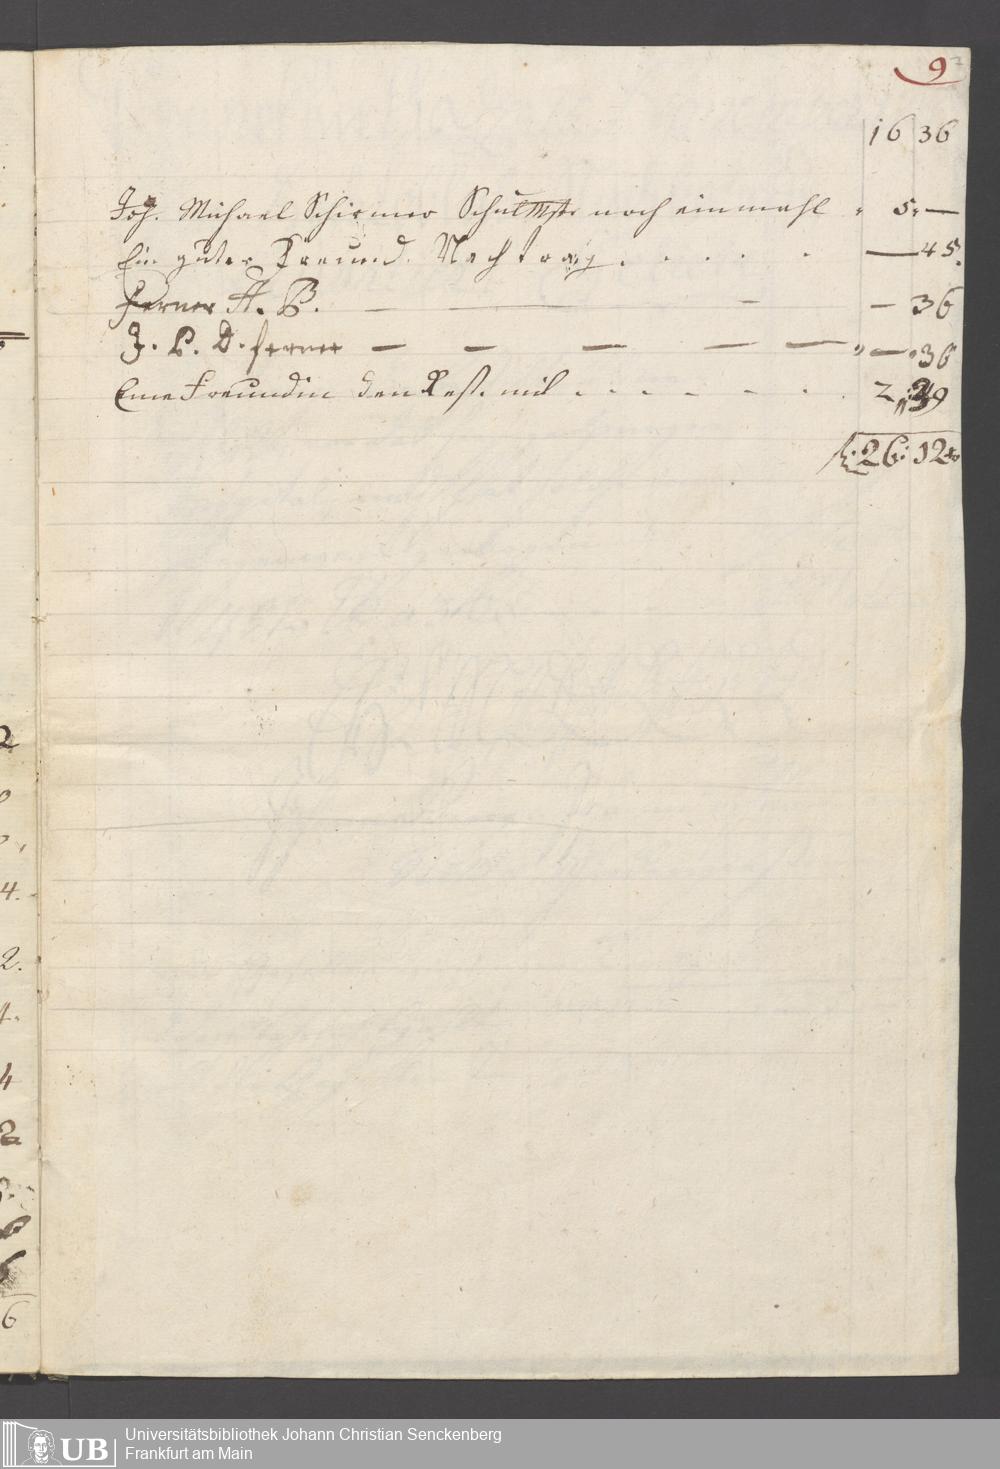 9
16 36
Joh. Michael Schirmer Schulmstr noch einmahl " 5 " —
Ein guter Freund. Nachtrag . . . . . — 45.
Ferner A. B. — — — — 36
J. C. D. ferner — — — — — " — " 36
Eine Freundin den Rest mit . . . . . . . 2 " 39
f: 26: 12 xr
2
4.
2.
4
2
6
UB
Universitätsbibliothek Johann Christian Senckenberg
Frankfurt am Main